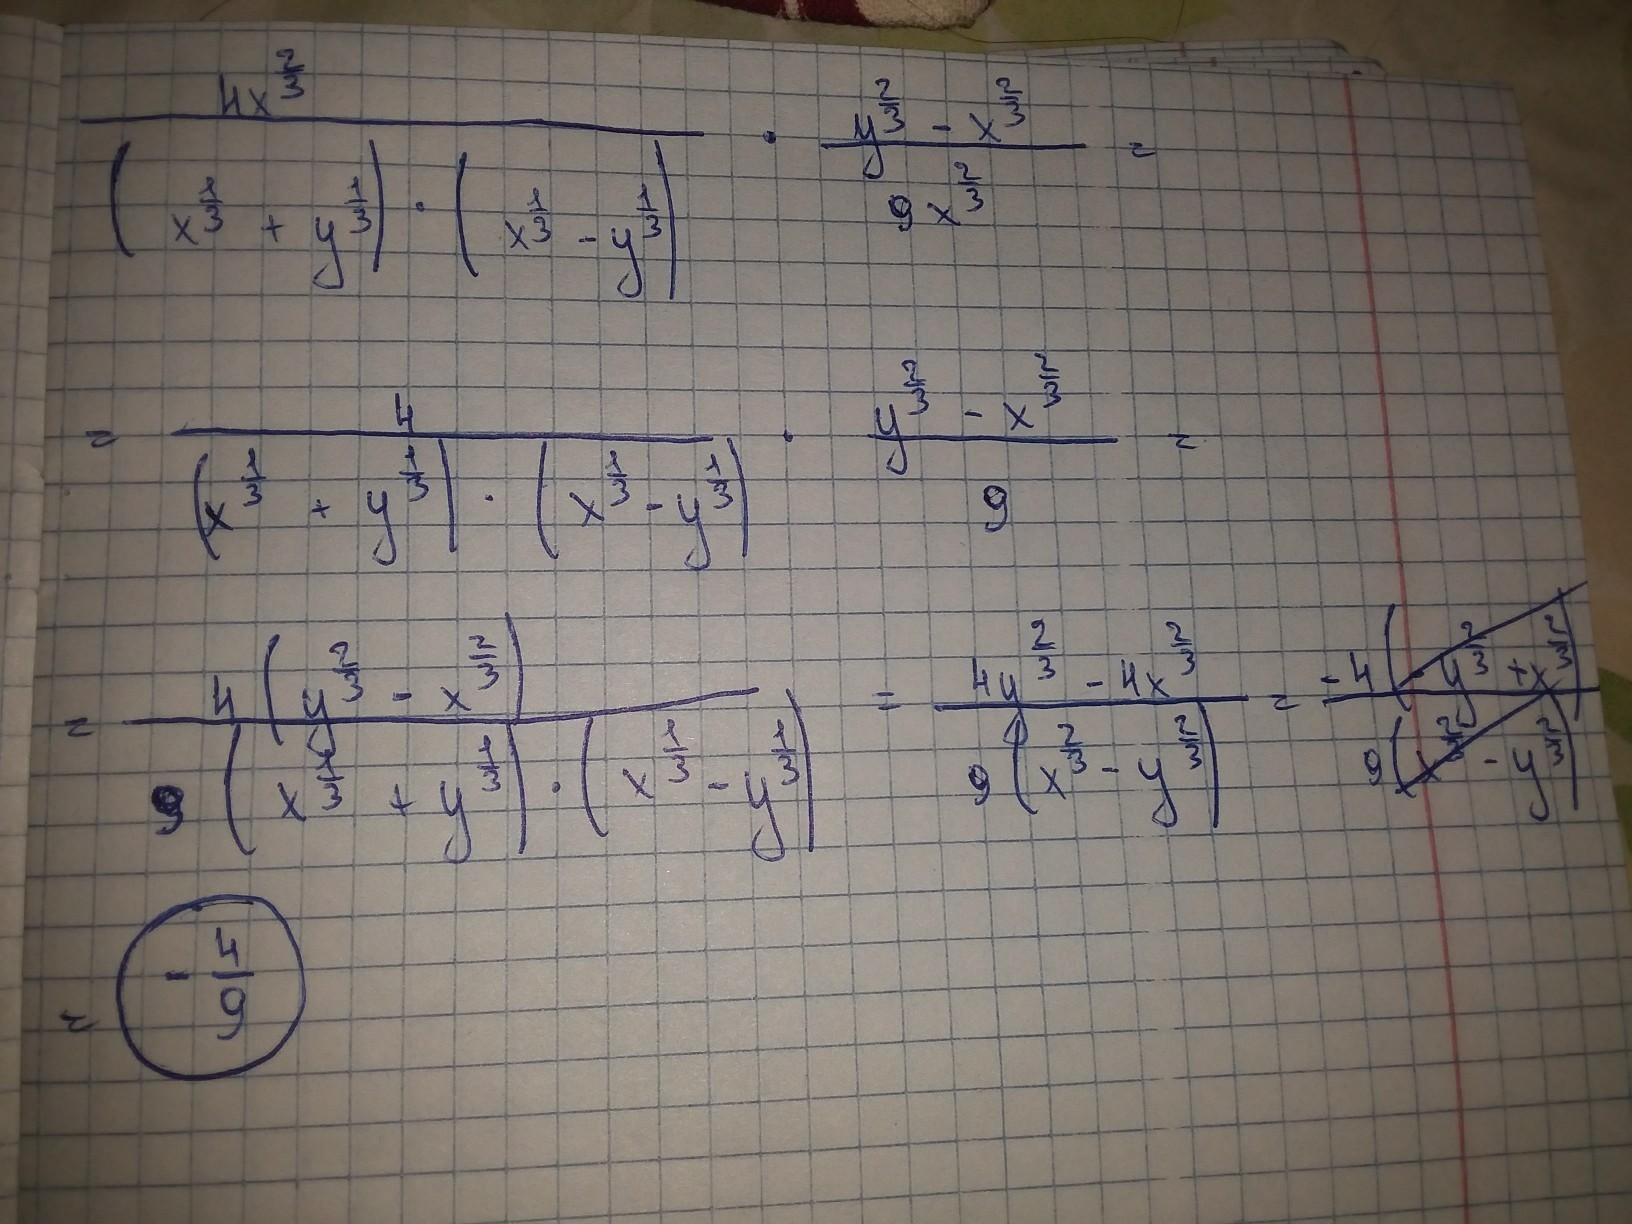 4x^(2/3) / ((x^(1/3) + y^(1/3)) · (x^(1/3) - y^(1/3))) · (y^(2/3) - x^(2/3)) / (9x^(2/3)) =
= 4 / ((x^(1/3) + y^(1/3)) · (x^(1/3) - y^(1/3))) · (y^(2/3) - x^(2/3)) / 9 =
= 4(y^(2/3) - x^(2/3)) / (9(x^(1/3) + y^(1/3)) · (x^(1/3) - y^(1/3))) = (4y^(2/3) - 4x^(2/3)) / (9(x^(2/3) - y^(2/3))) = -4(-y^(2/3) + x^(2/3)) / (9(x^(2/3) - y^(2/3)))
= -4/9